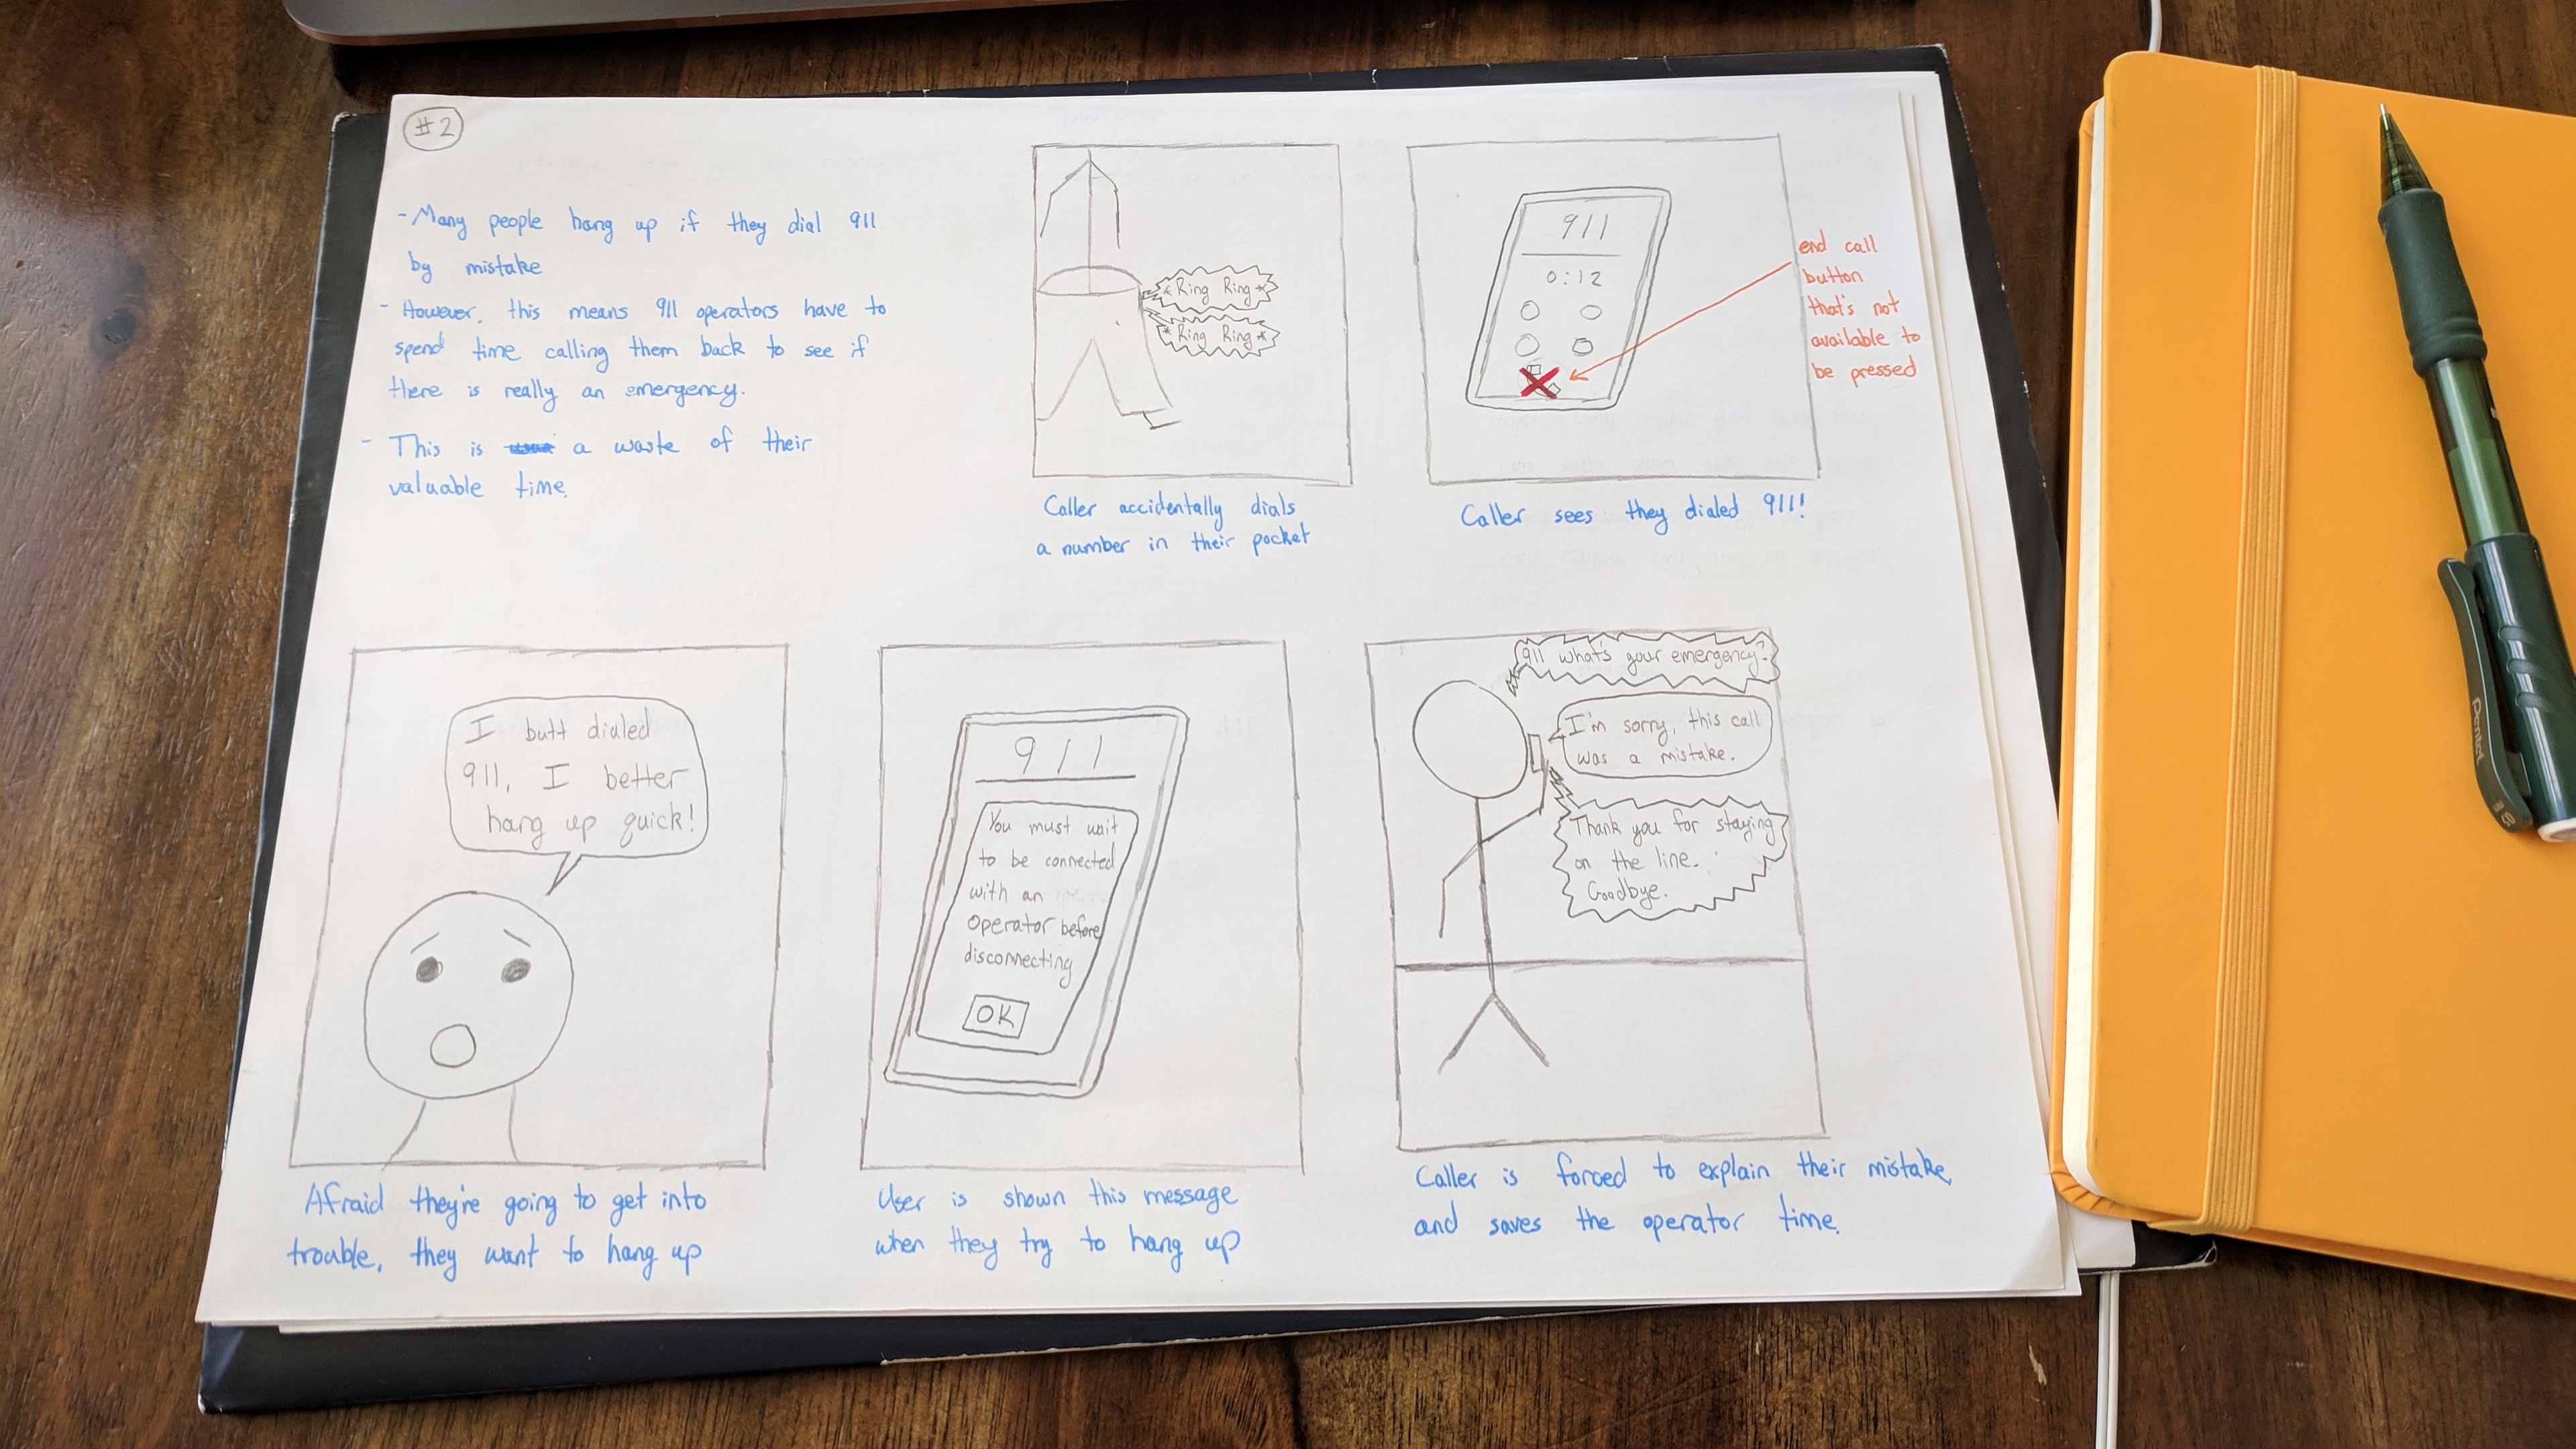 #2
- Many people hang up if they dial 911
by mistake
- However, this means 911 operators have to
spend time calling them back to see if
there is really an emergency.
- This is a waste of their
valuable time.
*Ring Ring*
*Ring Ring*
Caller accidentally dials
a number in their pocket
911
0:12
end call
button
that's not
available to
be pressed
Caller sees they dialed 911!
I butt dialed
911, I better
hang up quick!
Afraid they're going to get into
trouble, they want to hang up
911
You must wait
to be connected
with an
operator before
disconnecting
OK
User is shown this message
when they try to hang up
911 what's your emergency?
I'm sorry, this call
was a mistake.
Thank you for staying
on the line.
Goodbye.
Caller is forced to explain their mistake,
and saves the operator time.
Pentel